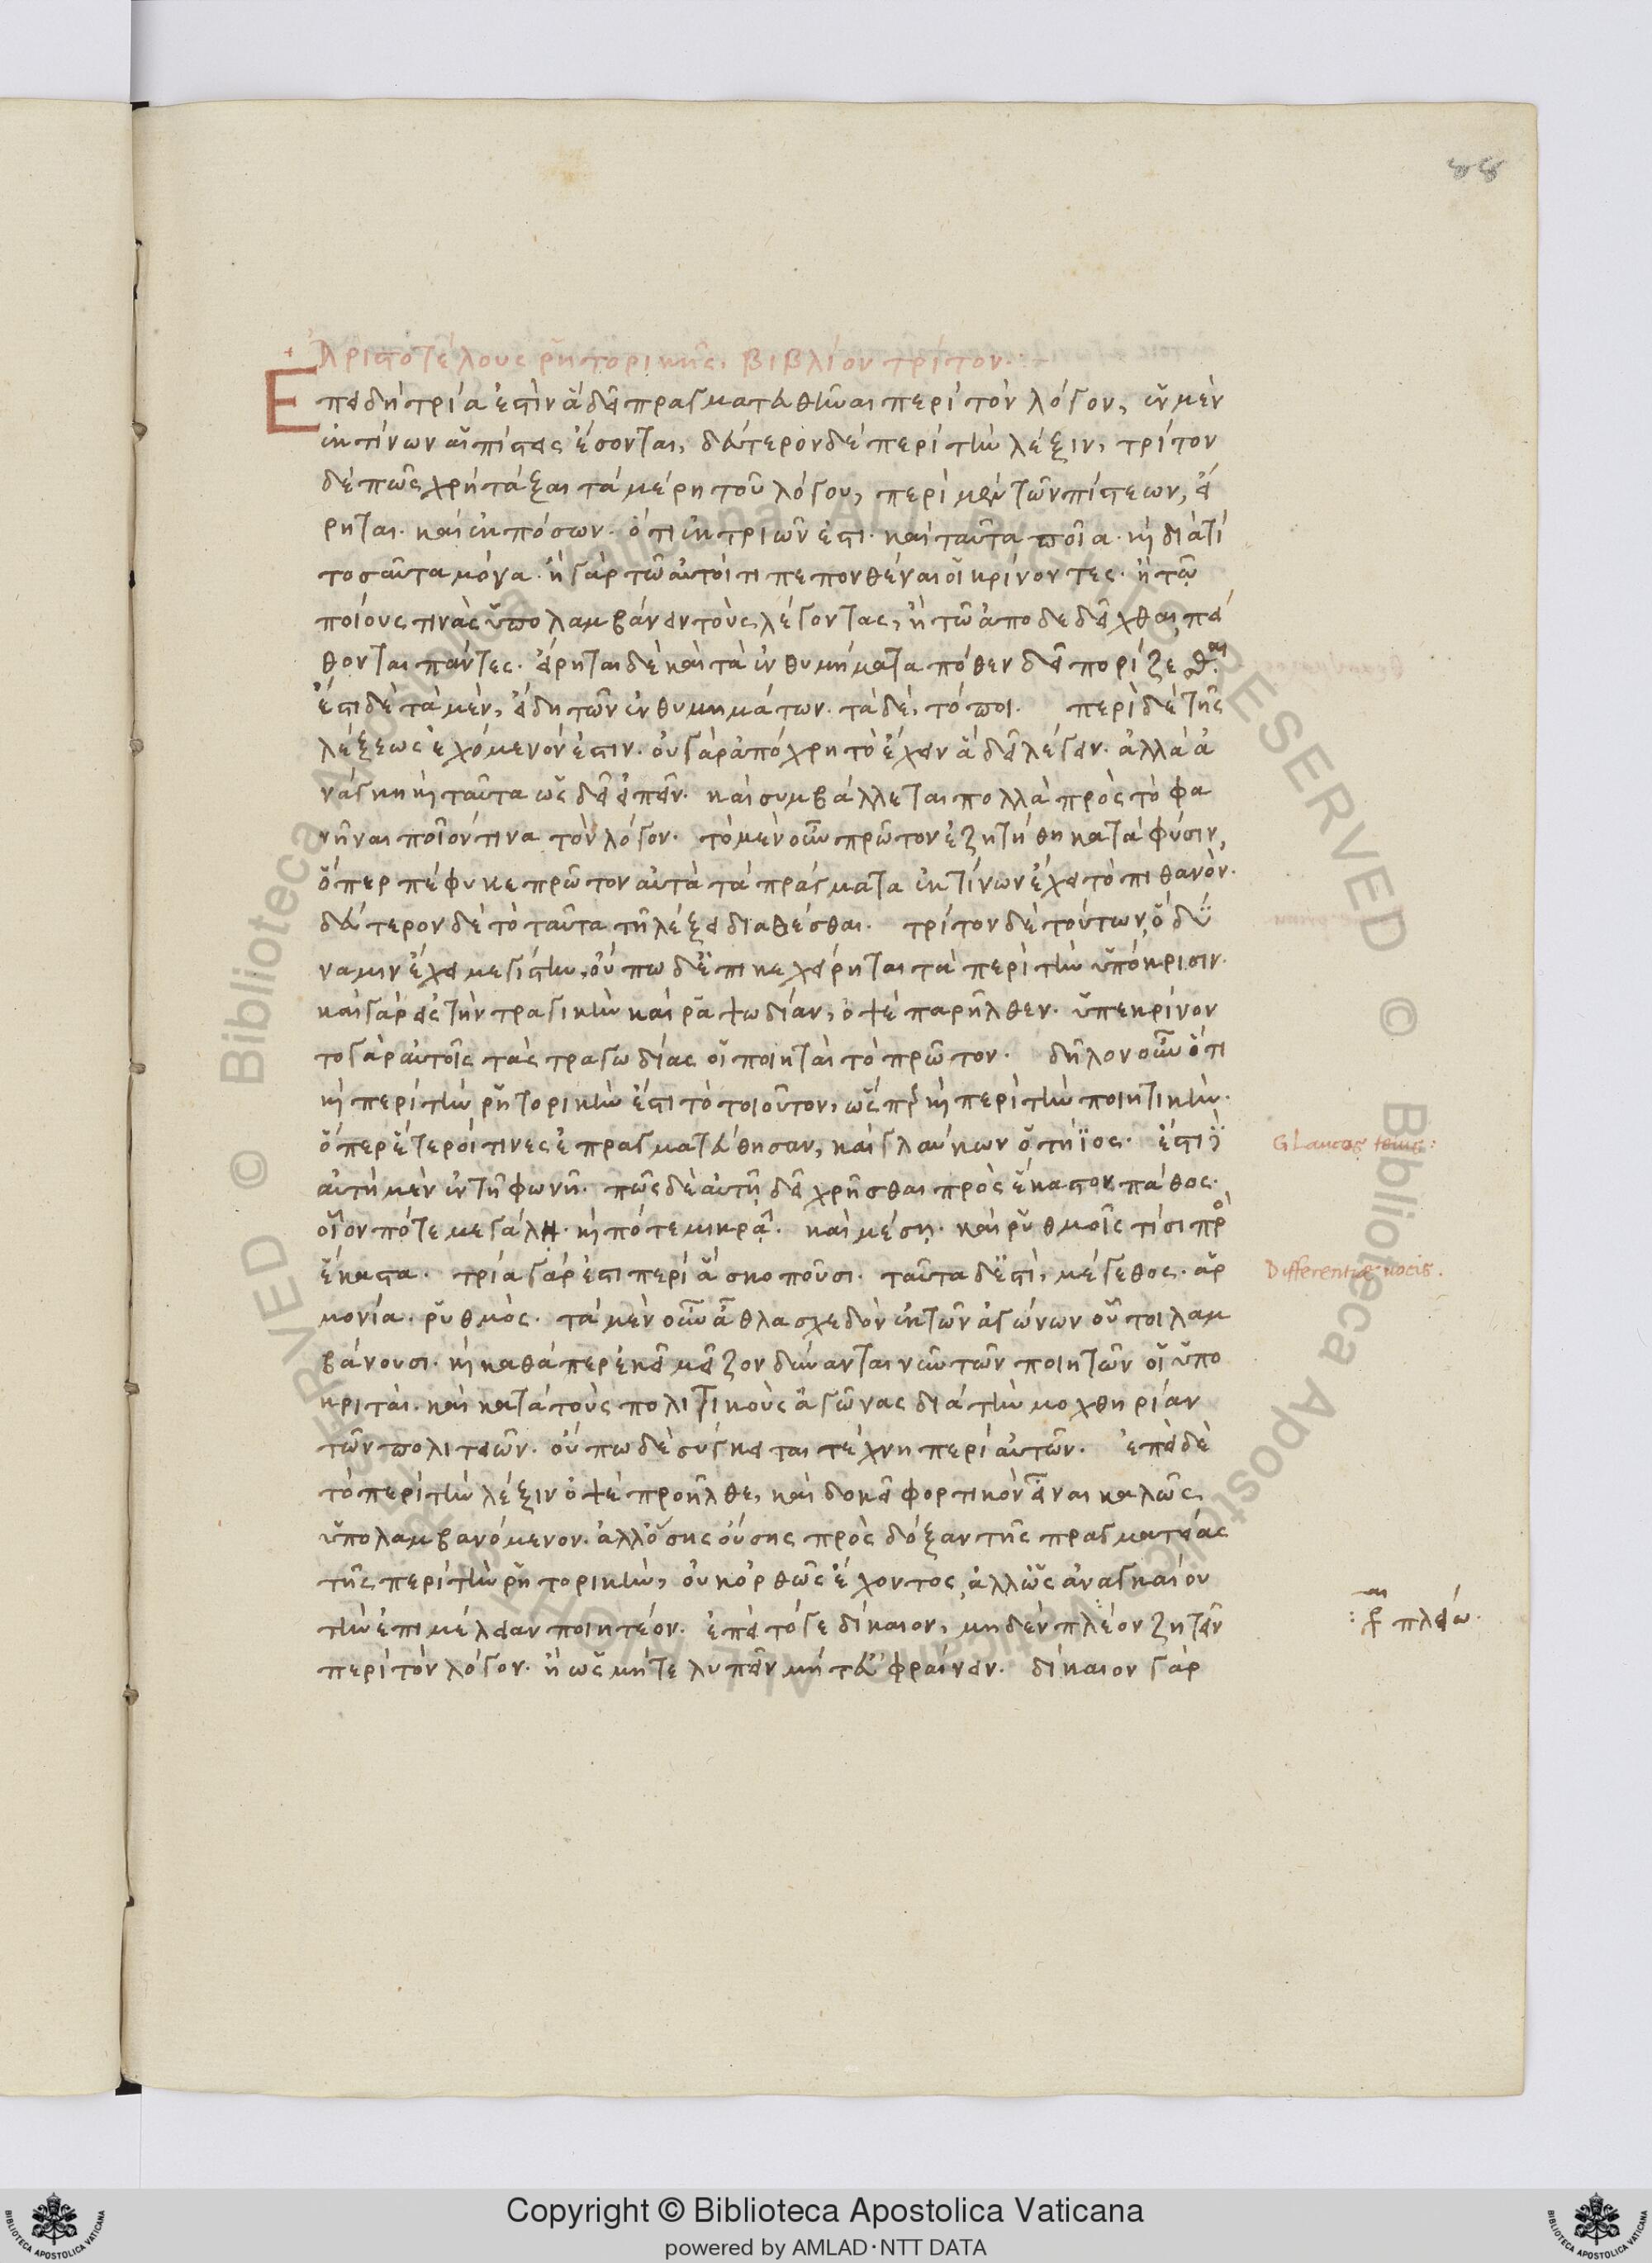 88
+ Ἀριστοτέλους ῥητορικῆς, βιβλίον τρίτον:
Ἐπειδὴ τρία ἐστὶν ἃ δεῖ πραγματευθῆναι περὶ τὸν λόγον, ἓν μὲν
ἐκ τίνων αἱ πίστεις ἔσονται, δεύτερον δὲ περὶ τὴν λέξιν, τρίτον
δὲ πῶς χρὴ τάξαι τὰ μέρη τοῦ λόγου, περὶ μὲν τῶν πίστεων, εἴ
ρηται. καὶ ἐκ πόσων. ὅτι ἐκ τριῶν ἐστι. καὶ ταῦτα ποῖα. καὶ διατί
τοσαῦτα μόνα. ἢ γὰρ τῶ αὐτοί τι πεπονθέναι οἱ κρίνοντες. ἢ τῶ
ποίους τινὰς ὑπολαμβάνειν τοὺς λέγοντας, ἢ τῶ ἀποδεδεῖχθαι, πεί
θονται πάντες. εἴρηται δὲ καὶ τὰ ἐνθυμήματα πόθεν δεῖ πορίζεσθαι.
ἔστι δὲ τὰ μὲν, εἴδη τῶν ἐνθυμημάτων. τὰ δὲ, τόποι. περὶ δὲ τῆς
λέξεως ἐχόμενόν ἐστιν. οὐ γὰρ ἀπόχρη τὸ ἔχειν ἃ δεῖ λέγειν. ἀλλὰ ἀ
νάγκη καὶ ταῦτα ὡς δεῖ εἰπεῖν. καὶ συμβάλλεται πολλὰ πρὸς τὸ φα
νῆναι ποῖόν τινα τὸν λόγον. τὸ μὲν οὖν πρῶτον ἐζητήθη κατὰ φύσιν,
ὅπερ πέφυκε πρῶτον αὐτὰ τὰ πράγματα ἐκ τίνων ἔχει τὸ πιθανόν.
δεύτερον δὲ τὸ ταῦτα τῇ λέξει διαθέσθαι. τρίτον δὲ τούτων, ὃ δύ
ναμιν ἔχει μεγίστην, οὔπω δ' ἐπικεχείρηται τὰ περὶ τὴν ὑπόκρισιν.
καὶ γὰρ εἰς τὴν τραγικὴν καὶ ῥαψωδίαν, ὀψὲ παρῆλθεν. ὑπεκρίνον
το γὰρ αὐτοῖς τὰς τραγωδίας οἱ ποιηταὶ τὸ πρῶτον. δῆλον οὖν ὅτι
καὶ περὶ τὴν ῥητορικὴν ἐστι τὸ τοιοῦτον, ὥσπερ καὶ περὶ τὴν ποιητικήν.
ὅπερ ἕτεροί τινες ἐπραγματεύθησαν, καὶ γλαύκων ὁ τήϊος. ἔστι δὲ
αὐτὴ μὲν ἐν τῇ φωνῇ. πῶς δὲ αὐτῇ δεῖ χρῆσθαι πρὸς ἕκαστον πάθος.
οἷον πότε μεγάλῃ. καὶ πότε μικρᾷ. καὶ μέσῃ. καὶ ῥυθμοῖς τίσι πρὸς
ἕκαστα. τρία γάρ ἐστι περὶ ἃ σκοποῦσι. ταῦτα δ' ἐστὶ, μέγεθος. ἁρ
μονία. ῥυθμὸς. τὰ μὲν οὖν ἆθλα σχεδὸν ἐκ τῶν ἀγώνων οὗτοι λαμ
βάνουσι. καὶ καθάπερ ἐκεῖ μεῖζον δύνανται νῦν τῶν ποιητῶν οἱ ὑπο
κριταὶ. καὶ κατὰ τοὺς πολιτικοὺς ἀγῶνας διὰ τὴν μοχθηρίαν
τῶν πολιτειῶν. οὔπω δὲ σύγκειται τέχνη περὶ αὐτῶν. ἐπεὶ δὲ
τὸ περὶ τὴν λέξιν ὀψὲ προῆλθε, καὶ δοκεῖ φορτικὸν εἶναι καλῶς
ὑπολαμβανόμενον. ἀλλ' ὅλης οὔσης πρὸς δόξαν τῆς πραγματείας
τῆς περὶ τὴν ῥητορικὴν, οὐκ ὀρθῶς ἔχοντος, ἀλλ' ὡς ἀναγκαίου
τὴν ἐπιμέλειαν ποιητέον. ἐπεὶ τό γε δίκαιον, μηδὲν πλέον ζητεῖν
περὶ τὸν λόγον. ἢ ὡς μήτε λυπεῖν μήτ' εὐφραίνειν. δίκαιον γὰρ
Glaucos teius:
Differentiae vocis.
πλείω.
Copyright © Biblioteca Apostolica Vaticana
powered by AMLAD·NTT DATA